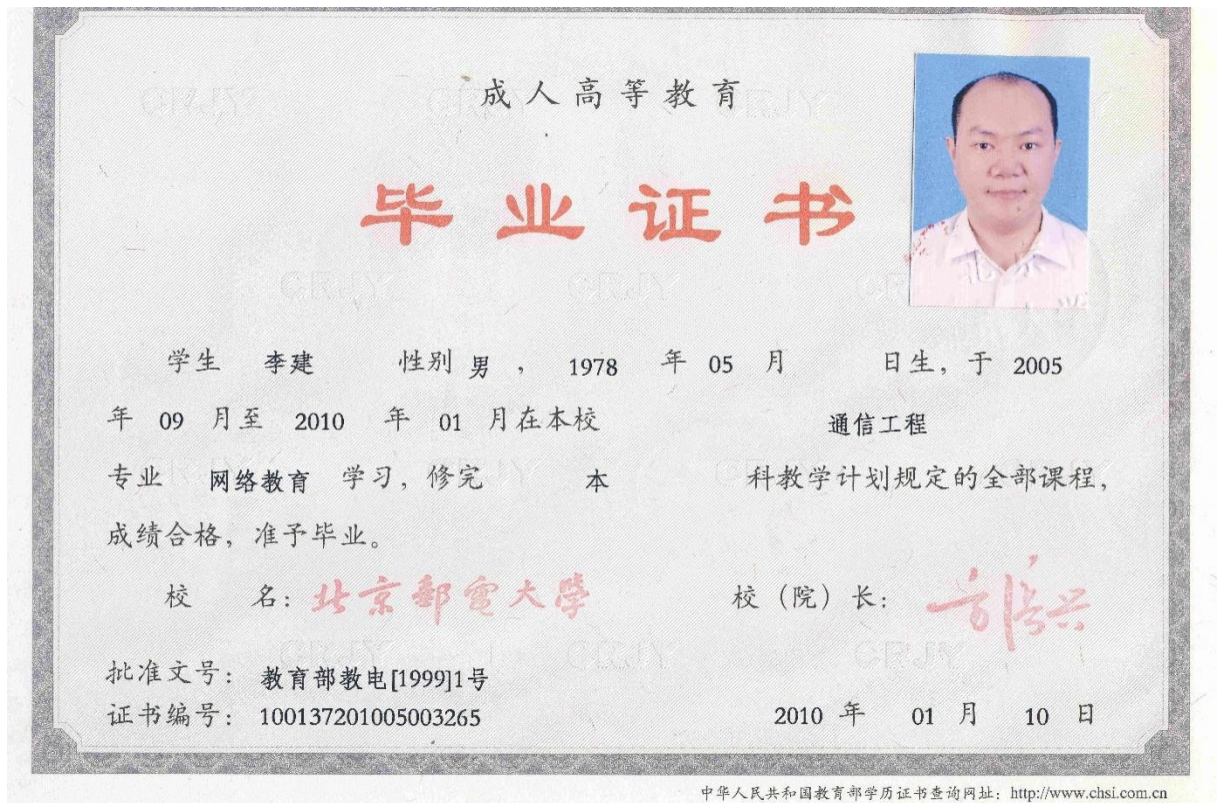 成人高等教育
毕业证书
学生 李建 性别 男 , 1978 年 05 月 日生, 于 2005
年 09 月至 2010 年 01 月在本校 通信工程
专业 网络教育 学习, 修完 本 科教学计划规定的全部课程,
成绩合格, 准予毕业。
校 名: 北京郵電大學 校（院）长: 方滨兴
批准文号: 教育部教电[1999]1号
证书编号: 100137201005003265 2010 年 01 月 10 日
中华人民共和国教育部学历证书查询网址: http://www.chsi.com.cn